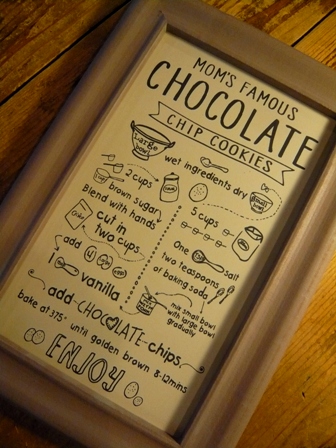 MOM'S FAMOUS
CHOCOLATE
CHIP COOKIES
Large
bowl
wet ingredients
dry
small
bowl
2 cups
brown sugar
Blend with hands
cut in
two cups
add 4 eggs
1 vanilla
5 cups
One salt
two teaspoons
of baking soda
mix small bowl
with large bowl
gradually
add CHOCOLATE chips
bake at 375° until golden brown 8-12mins
ENJOY